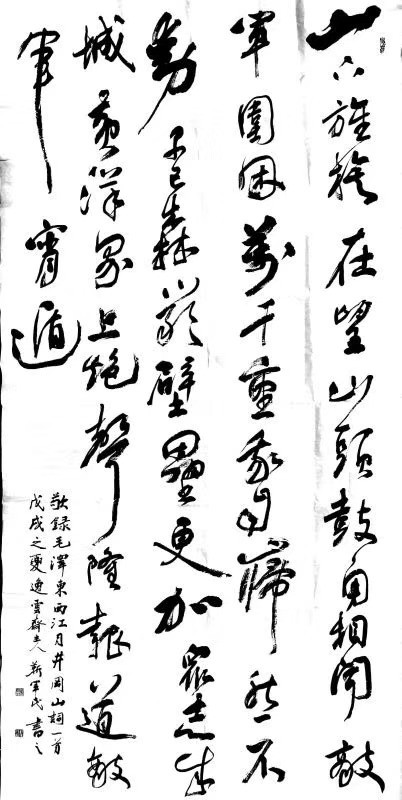 山下旌旗在望山頭鼓角相聞敵
軍圍困萬千重我自巋然不
動早已森嚴壁壘更加眾志成
城黃洋界上炮聲隆報道敵
軍宵遁
敬録毛澤東西江月井岡山詞一首
戊戌之夏逸雲齋主人靳軍民書之